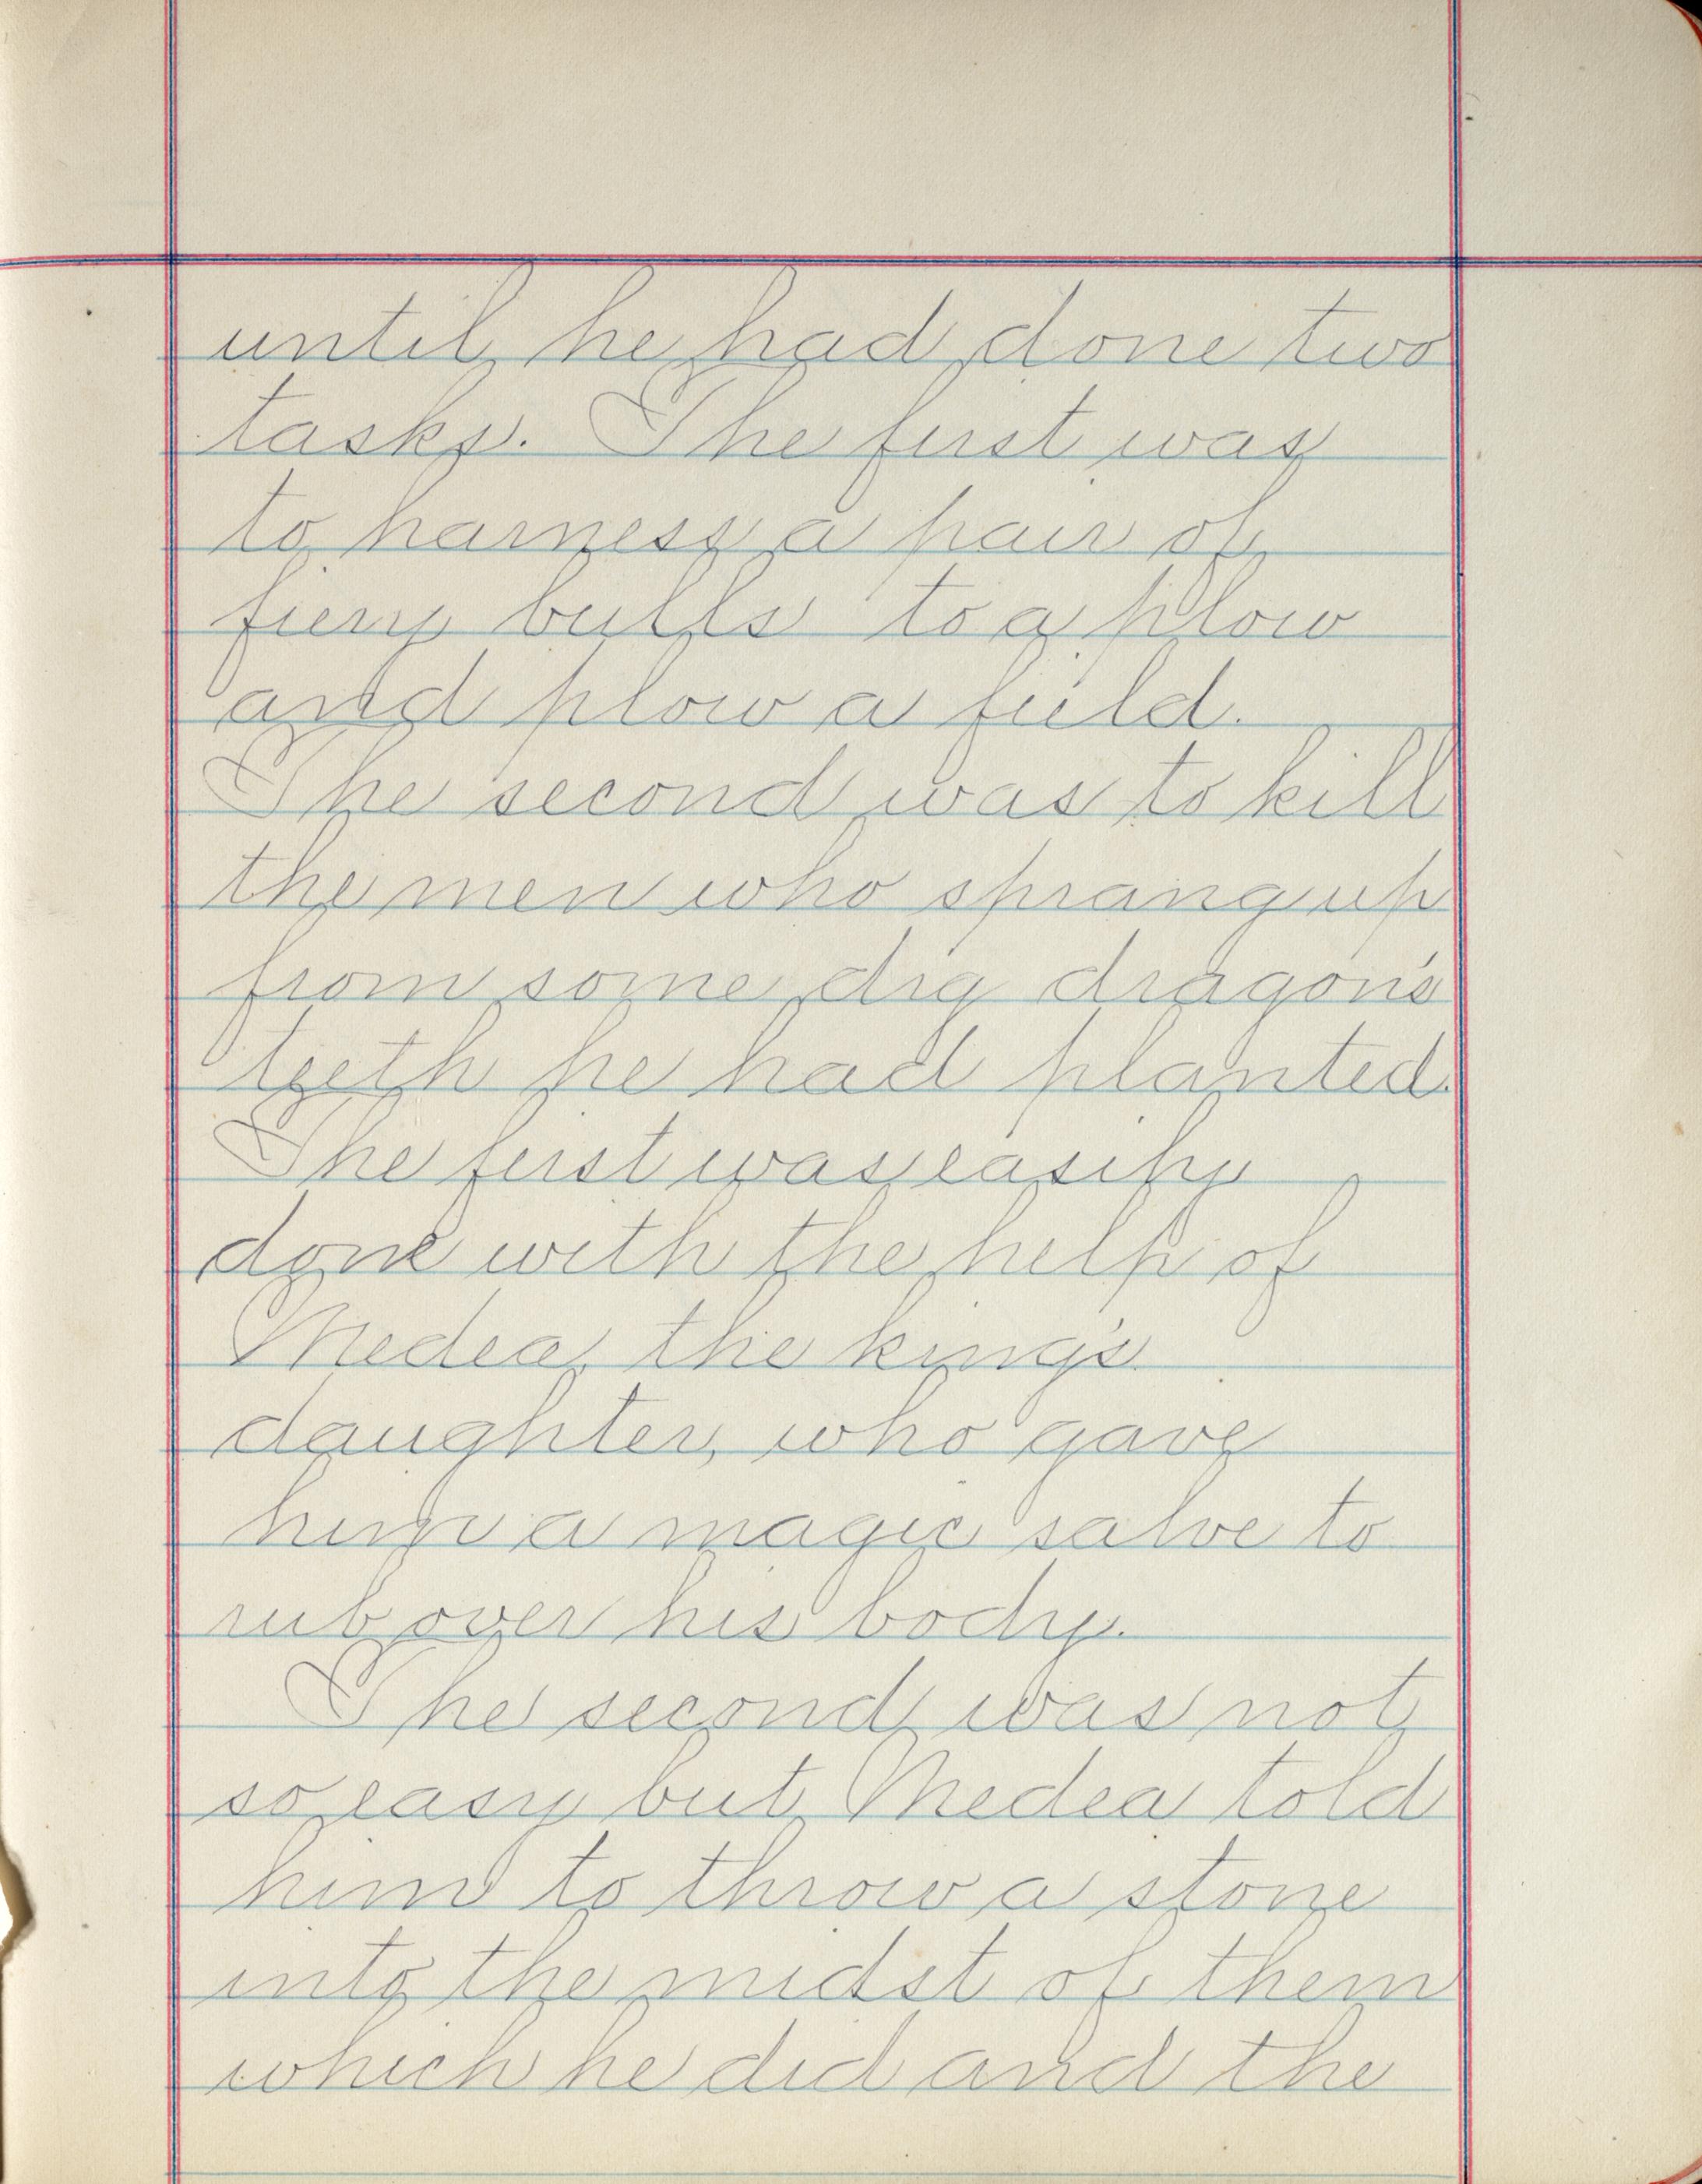 until he had done two
tasks. The first was
to harness a pair of
fiery bulls to a plow
and plow a field.
The second was to kill
the men who sprang up
from some drg dragon's
teeth he had planted.
The first was easily
done with the help of
Medea, the king's
daughter, who gave
him a magic salve to
rub over his body.
The second was not
so easy but Medea told
him to throw a stone
into the midst of them
which he did and the